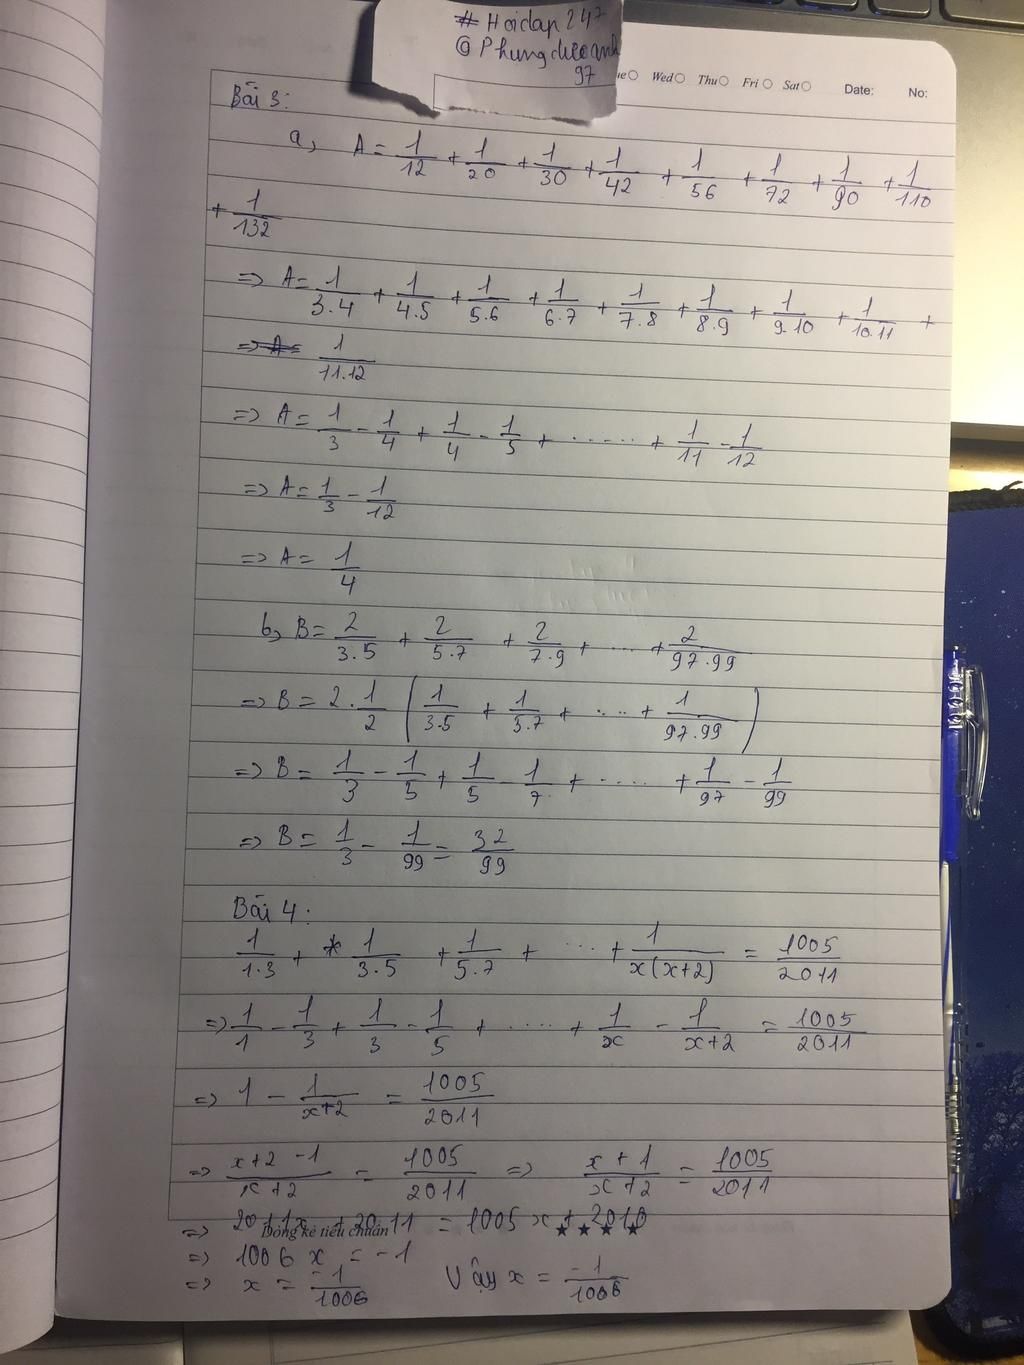 # Hoidap 247
@Phungducanh
97
ue Wed Thu Fri Sat Date: No:
Bài 3:
a, A = 1/12 + 1/20 + 1/30 + 1/42 + 1/56 + 1/72 + 1/90 + 1/110
+ 1/132
=> A = 1/3.4 + 1/4.5 + 1/5.6 + 1/6.7 + 1/7.8 + 1/8.9 + 1/9.10 + 1/10.11 +
=> A = 1/11.12
=> A = 1/3 - 1/4 + 1/4 - 1/5 + ...... + 1/11 - 1/12
=> A = 1/3 - 1/12
=> A = 1/4
b, B = 2/3.5 + 2/5.7 + 2/7.9 + .... + 2/97.99
=> B = 2 . 1/2 ( 1/3.5 + 1/5.7 + .... + 1/97.99 )
=> B = 1/3 - 1/5 + 1/5 - 1/7 + ..... + 1/97 - 1/99
=> B = 1/3 - 1/99 = 32/99
Bài 4:
1/1.3 + 1/3.5 + 1/5.7 + .... + 1/x(x+2) = 1005/2011
=> 1/1 - 1/3 + 1/3 - 1/5 + ..... + 1/x - 1/x+2 = 1005/2011
=> 1 - 1/x+2 = 1005/2011
=> x+2-1/x+2 = 1005/2011 => x+1/x+2 = 1005/2011
=> 2011x + 2011 = 1005x + 2010
Dòng kẻ tiêu chuẩn ★ ★ ★ ★
=> 1006 x = -1
=> x = -1/1006 Vậy x = -1/1006